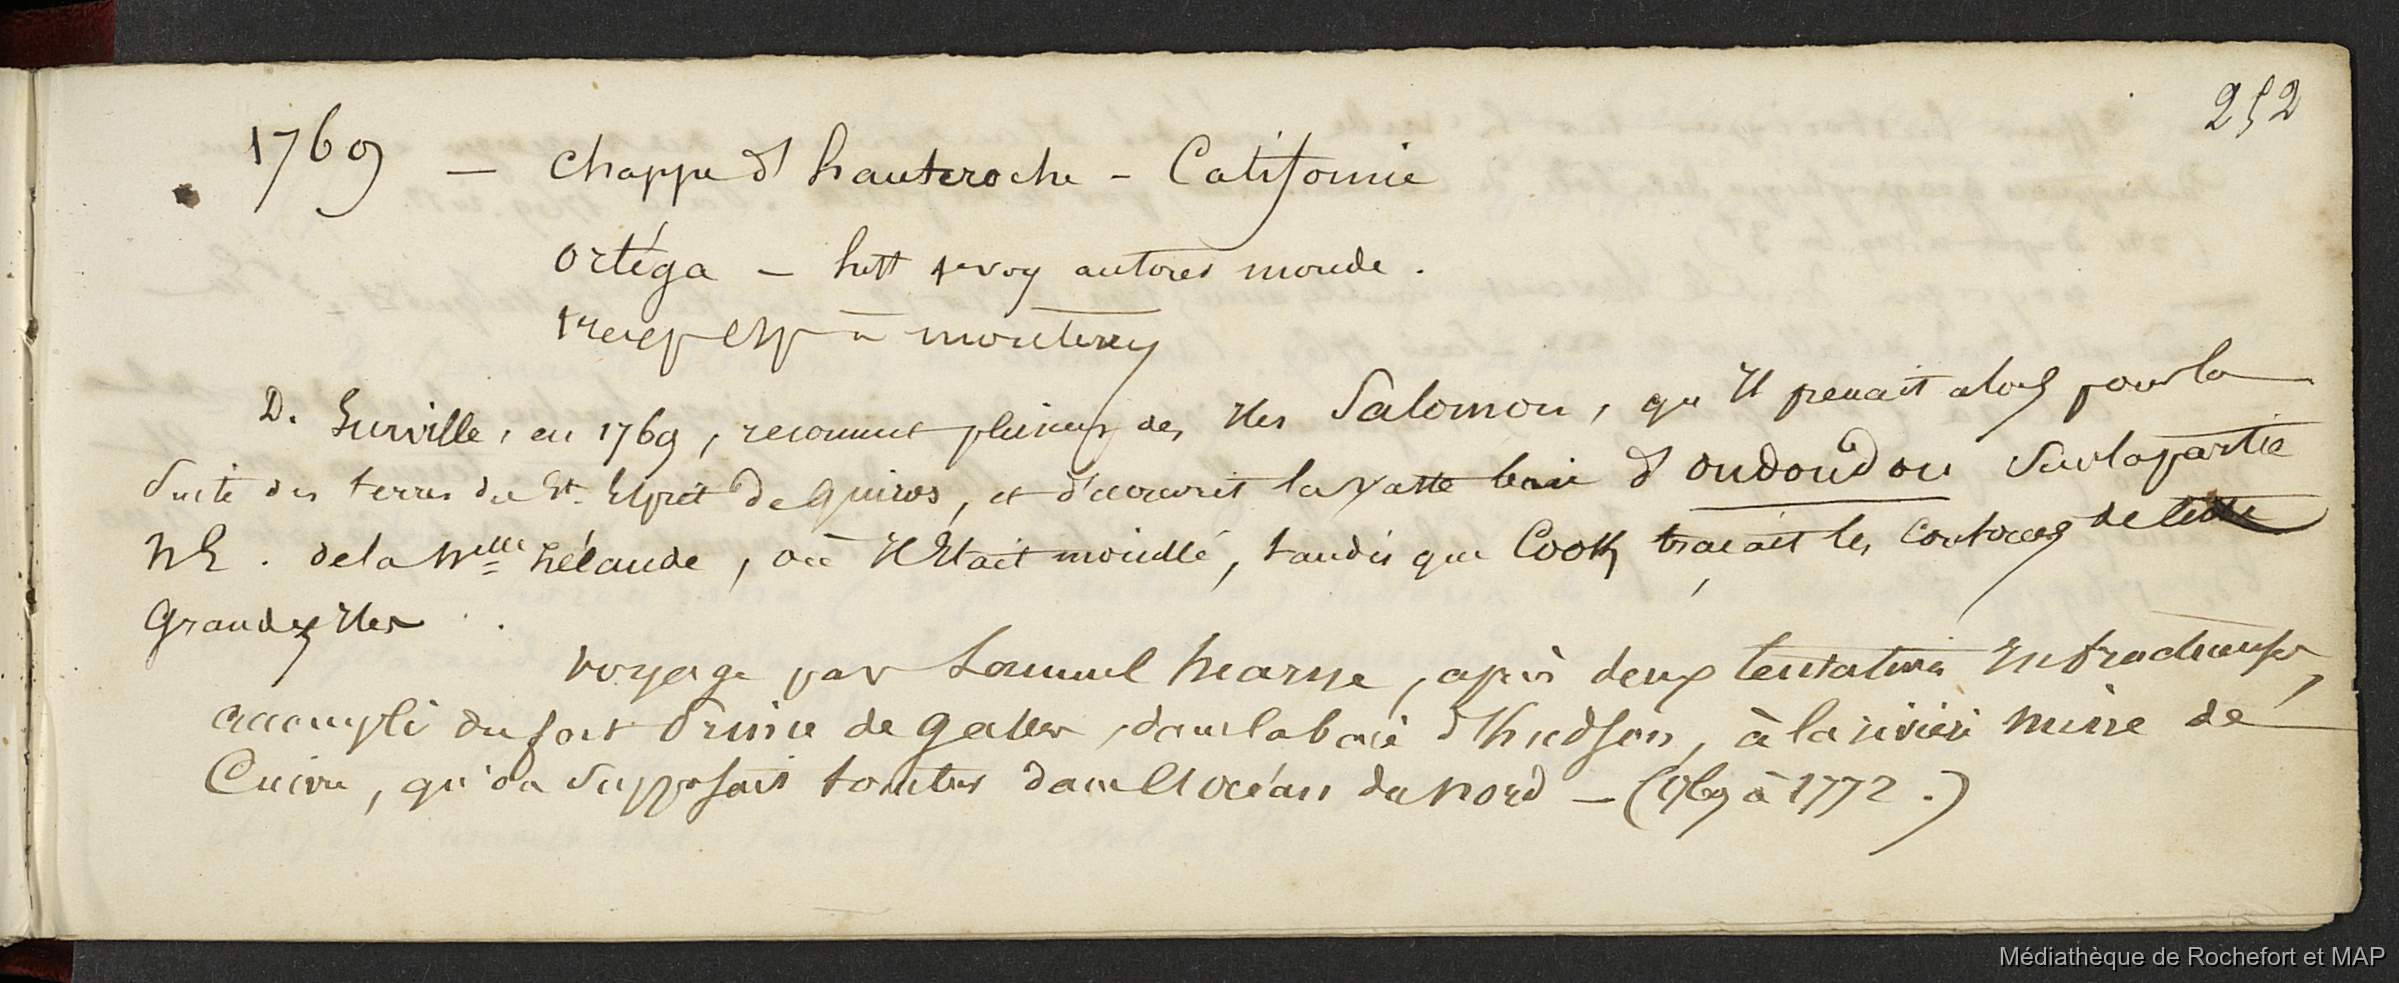 252
1769 — Chappe d'hauteroche - Californie
Ortéga — hist voy autour monde.
esp à monterey
D. Surville, en 1769, reconnut plusieurs des Iles Salomon, qu'Il prenait alors pour la
Suite des terres du St. Esprit de Quiros, et découvrit la vaste baie d'oudoudou sur la partie
NE. de la Nlle Zélande, où Il Etait mouillé, tandis que Cook traçait les contours de cette
Grandes Iles.
voyage par Samuel hearne, après deux tentatives Infructueuses,
accompli du fort Prince de Galles, dans la baie d'hudson, à la rivière Mine de
Cuivre, qu'on Supposait tomber dans l'océan du nord — (1769 à 1772.)
Médiathèque de Rochefort et MAP